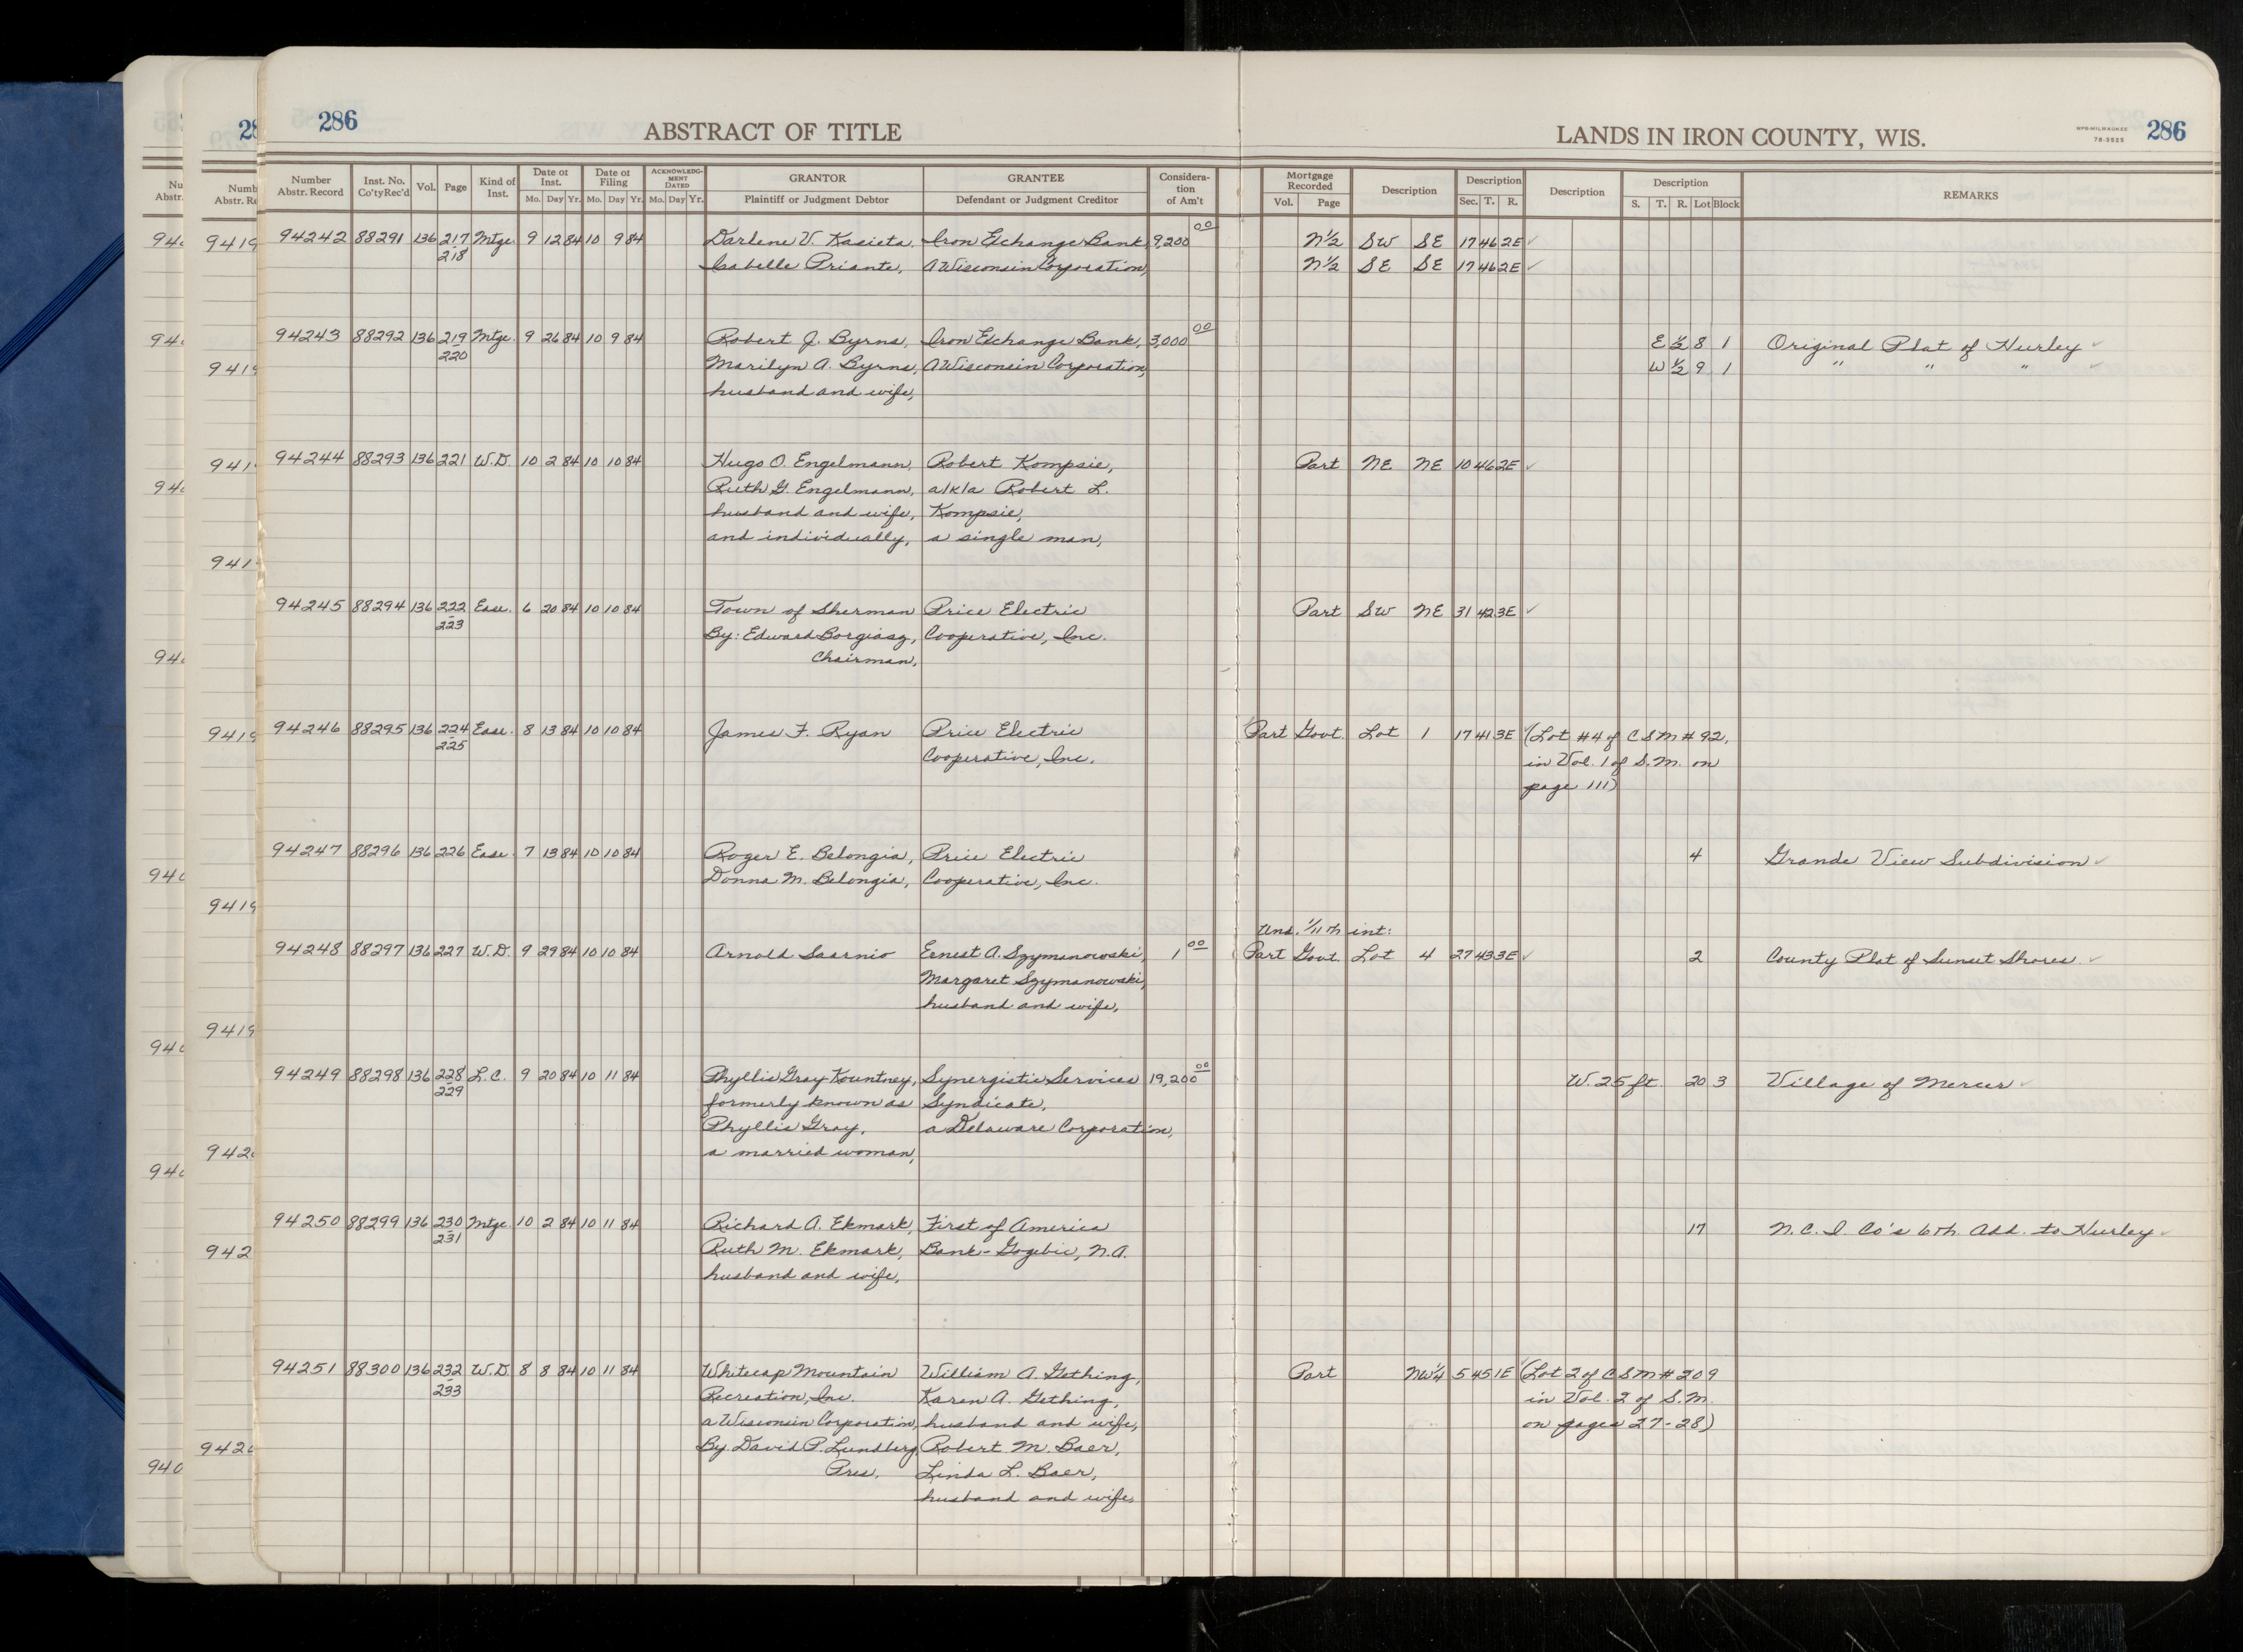 286 ABSTRACT OF TITLE LANDS IN IRON COUNTY, WIS. NPB-MILWAUKEE 78-3525 286
Number Abstr. Record Inst. No. Co'ty Rec'd Vol. Page Kind of Inst. Date of Inst. Mo. Day Yr. Date of Filing Mo. Day Yr. ACKNOWLEDGMENT DATED Mo. Day Yr. GRANTOR Plaintiff or Judgment Debtor GRANTEE Defendant or Judgment Creditor Consideration of Am't Mortgage Recorded Vol. Page Description Description Sec. T. R. Description Description S. T. R. Lot Block REMARKS
94242 88291 136 217 Mtge. 9 12 84 10 9 84 Darlene V. Kasieta, Iron Exchange Bank, 9,200 00 N½ SW SE 17 46 2E ✓
218 Isabelle Priante, A Wisconsin Corporation, N½ SE SE 17 46 2E ✓
94243 88292 136 219 Mtge. 9 26 84 10 9 84 Robert J. Byrns, Iron Exchange Bank, 3,000 00 E ½ 8 1 Original Plat of Hurley ✓
220 Marilyn A. Byrns, A Wisconsin Corporation, W ½ 9 1 " " " ✓
husband and wife,
94244 88293 136 221 W.D. 10 2 84 10 10 84 Hugo O. Engelmann, Robert Kompsie, Part NE NE 10 46 2E ✓
Ruth G. Engelmann, a/k/a Robert L.
husband and wife, Kompsie,
and individually, a single man,
94245 88294 136 222 Ease. 6 20 84 10 10 84 Town of Sherman Price Electric Part SW NE 31 42 3E ✓
223 By: Edward Borgiasz, Cooperative, Inc.
Chairman,
94246 88295 136 224 Ease. 8 13 84 10 10 84 James F. Ryan Price Electric Part Govt. Lot 1 17 41 3E (Lot #4 of CSM #92,
225 Cooperative, Inc. in Vol. 1 of S.M. on
page 111)
94247 88296 136 226 Ease. 7 13 84 10 10 84 Roger E. Belongia, Price Electric 4 Grande View Subdivision ✓
Donna M. Belongia, Cooperative, Inc.
Und. 1/11th int:
94248 88297 136 227 W.D. 9 29 84 10 10 84 Arnold Saarnio Ernest A. Szymanowski, 1 00 Part Govt. Lot 4 27 43 3E ✓ 2 County Plat of Sunset Shores. ✓
Margaret Szymanowski,
husband and wife,
94249 88298 136 228 L.C. 9 20 84 10 11 84 Phyllis Gray Kountney, Synergistic Services 19,200 00 W. 25 ft. 20 3 Village of Mercer ✓
229 formerly known as Syndicate,
Phyllis Gray, a Delaware Corporation,
a married woman,
94250 88299 136 230 Mtge. 10 2 84 10 11 84 Richard A. Ekmark, First of America 17 N.C.I. Co's 6th Add. to Hurley ✓
231 Ruth M. Ekmark, Bank-Gogebic, N.A.
husband and wife,
94251 88300 136 232 W.D. 8 8 84 10 11 84 Whitecap Mountain William A. Gething, Part NW¼ 5 45 1E (Lot 2 of CSM #209
233 Recreation, Inc. Karen A. Gething, in Vol. 2 of S.M.
a Wisconsin Corporation, husband and wife, on pages 27-28)
By David P. Lundberg Robert M. Baer,
Pres. Linda L. Baer,
husband and wife,